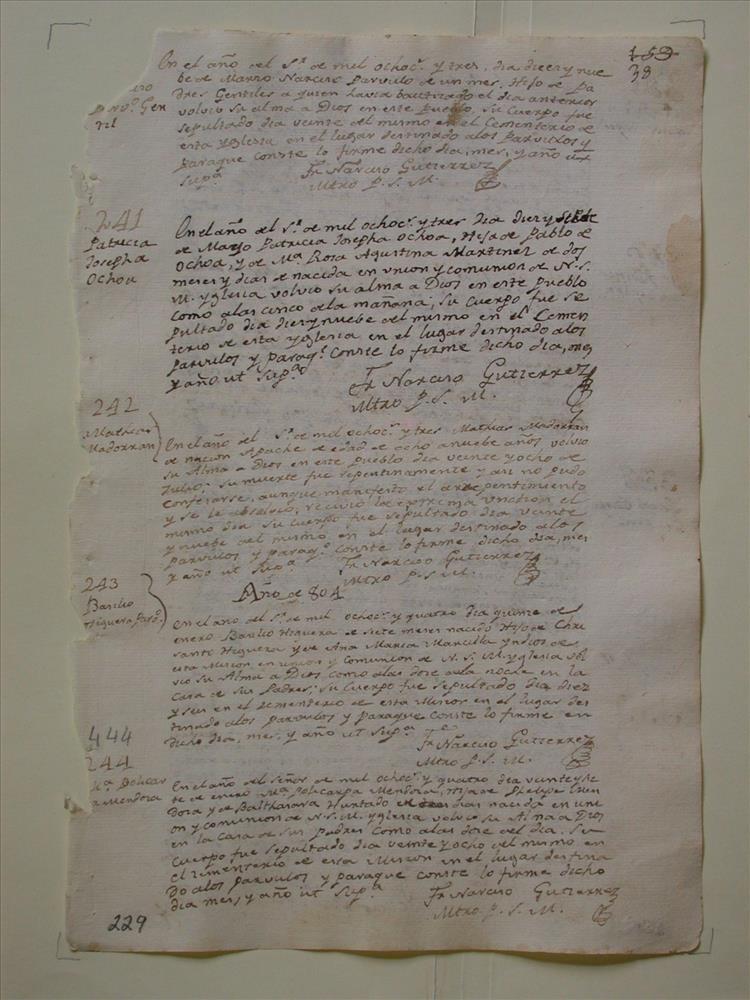 153
38
En el año del S.r de mil ochoc.s y tres, dia diez y nue
be de Marzo Narciso Parvulo de un mes, Hijo de Pa
dres Gentiles a quien havia bautizado el dia anterior
volvio su alma a Dios en este Pueblo, su Cuerpo fue
sepultado dia veinte del mismo en el Cementerio de
esta Yglesia en el lugar destinado alos Parvulos y
paraque conste lo firme dicho dia, mes, y año ut
sup.a
Fr Narciso Gutierrez
Mtro P. S. M.
Parv.o Gen
til
241
Patricia
Josepha
Ochoa
En el año del S.r de mil ochoc.s y tres dia diez y siete
de Marzo Patricia Josepha Ochoa, Hija de Pablo de
Ochoa, y de M.a Rosa Agustina Martinez de dos
meses y dias de nacida en union y comunion de N. S.
M. Yglesia volvio su alma a Dios en este pueblo
como alas cinco dela mañana, su Cuerpo fue se
pultado dia diez y nuebe del mismo en el Cemen
terio de esta Yglesia en el lugar destinado alos
Parvulos y paraq.e conste lo firme dicho dia, mes
y año ut sup.a
Fr Narciso Gutierrez
Mtro P. S. M.
242
Mathias
Madorran
En el año del S.r de mil ochoc.s y tres Mathias Madorran
de nacion Apache de edad de ocho anuebe años volvio
su Alma a Dios en este pueblo dia veinte y ocho de
Julio; su muerte fue repentinamente y asi no pudo
confesarse, aunque manifesto el arrepentimiento
y se le absolvio, recivio la extrema unction el
mismo dia su cuerpo fue sepultado dia veinte
y nuebe del mismo en el lugar destinado alos
parvulos y paraq.e conste lo firme dicho dia, mes
y año ut sup.a
Fr Narciso Gutierrez
Mtro P. S. M.
Año de 804
243
Basilio
Higuera Parv.o
En el año del S.r de mil ochoc.s y quatro dia quinze de
enero Basilio Higuera de siete meses nacido Hijo de Chri
santo Higuera y de Ana Maria Mancilla Yndios de
esta Mision en union y comunion de N. S. M. Yglesia vol
vio su Alma a Dios como alas doze dela noche en la
Casa de sus Padres; su Cuerpo fue sepultado dia diez
y seis en el Cementerio de esta Mision en el lugar des
tinado alos parvulos y paraque conste lo firme en
dicho dia, mes, y año ut sup.a
Fr Narciso Gutierrez
Mtro P. S. M.
444
244
M.a Policar
a Mendoza
En el año del Señor de mil ochoc.s y quatro dia veinte y sie
te de enero M.a Policarpa Mendoza, Hija de Phelipe Men
doza y de Balthasara Hurtado de dias nacida en uni
on y comunion de N. S. M. Yglesia volvio su Alma a Dios
en la Casa de sus padres como alas doze del dia. Su
Cuerpo fue sepultado dia veinte y ocho del mismo en
el Cementerio de esta Mision en el lugar destina
do alos parvulos y paraque conste lo firme dicho
dia mes, y año ut sup.a
Fr Narciso Gutierrez
Mtro P. S. M.
229